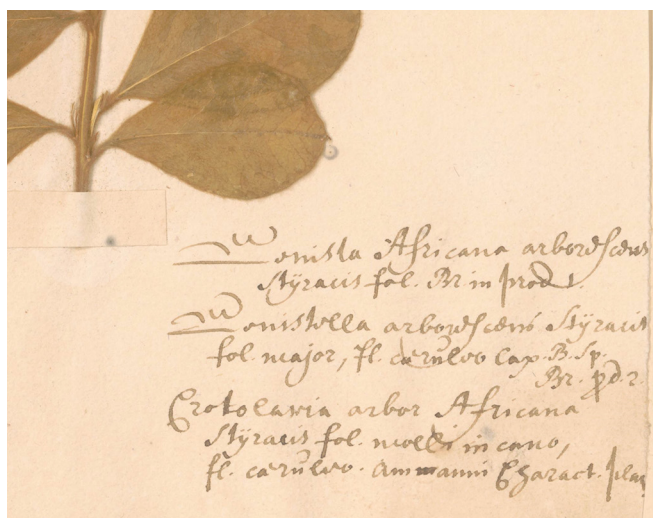 Genista Africana arborescens
Styracis fol. Br. in prod 1.
Genistella arborescens Styracis
fol. major, fl. cæruleo Cap. B. Sp.
Br. pd. 2.
Crotolaria arbor Africana
Styracis fol. molli incano,
fl. cæruleo. Ammanni Charact. plan